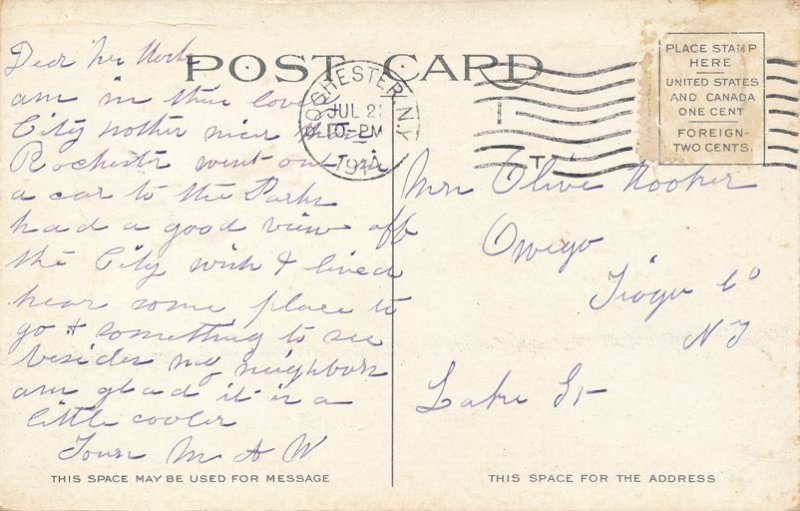 POST CARD
Dear
am in this
City
Rochester went out in
a car to the Parks
had a good view off
the City wish I lived
hear some place to
go & something to see
besides my neighbors
am glad it is a
little cooler
Yours M A W
ROCHESTER, N.Y.
JUL 2
10-PM
191
PLACE STAMP
HERE
UNITED STATES
AND CANADA
ONE CENT
FOREIGN-
TWO CENTS.
Mrs Olive Hooker
Owego
Tioga Co
N Y
Lake St
THIS SPACE MAY BE USED FOR MESSAGE
THIS SPACE FOR THE ADDRESS